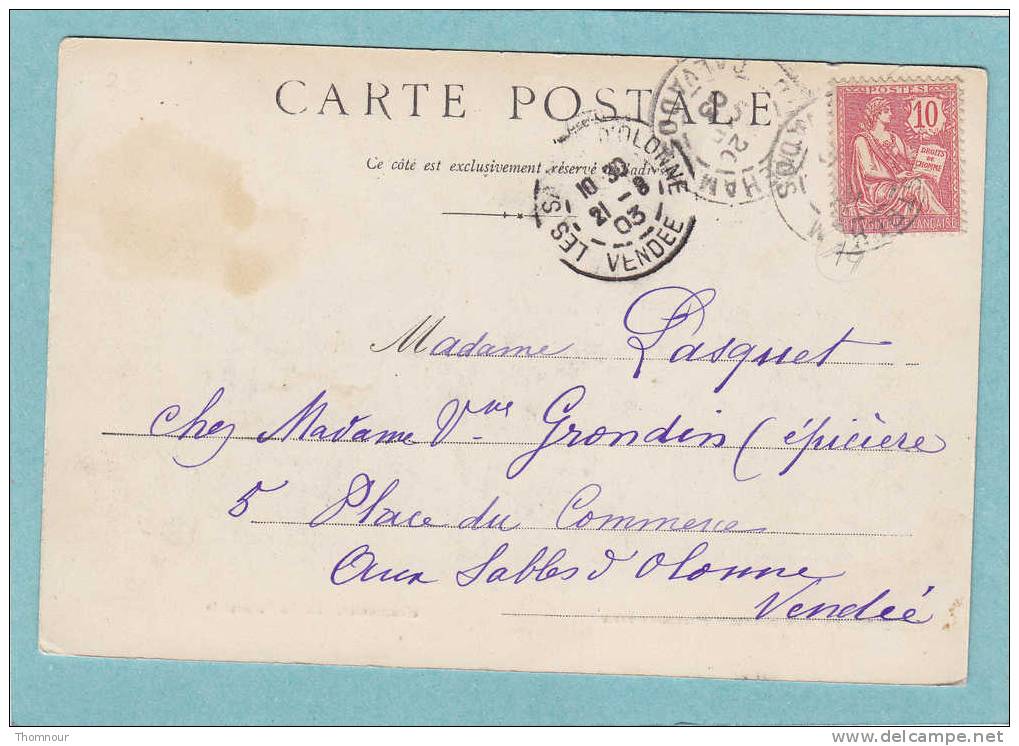 CARTE POSTALE
Ce côté est exclusivement réservé
POSTES
10
DROITS
DE
L'HOMME
D'OLONNE
10 30
21 - 8
03
LES
VENDEE
CALVADOS
20
HAM
Madame Pasquet
chez Madame Vve Grondin (épicière
5 Place du Commerce
Aux Sables d Olonne
Vendée
Thomnour
www.delcampe.net